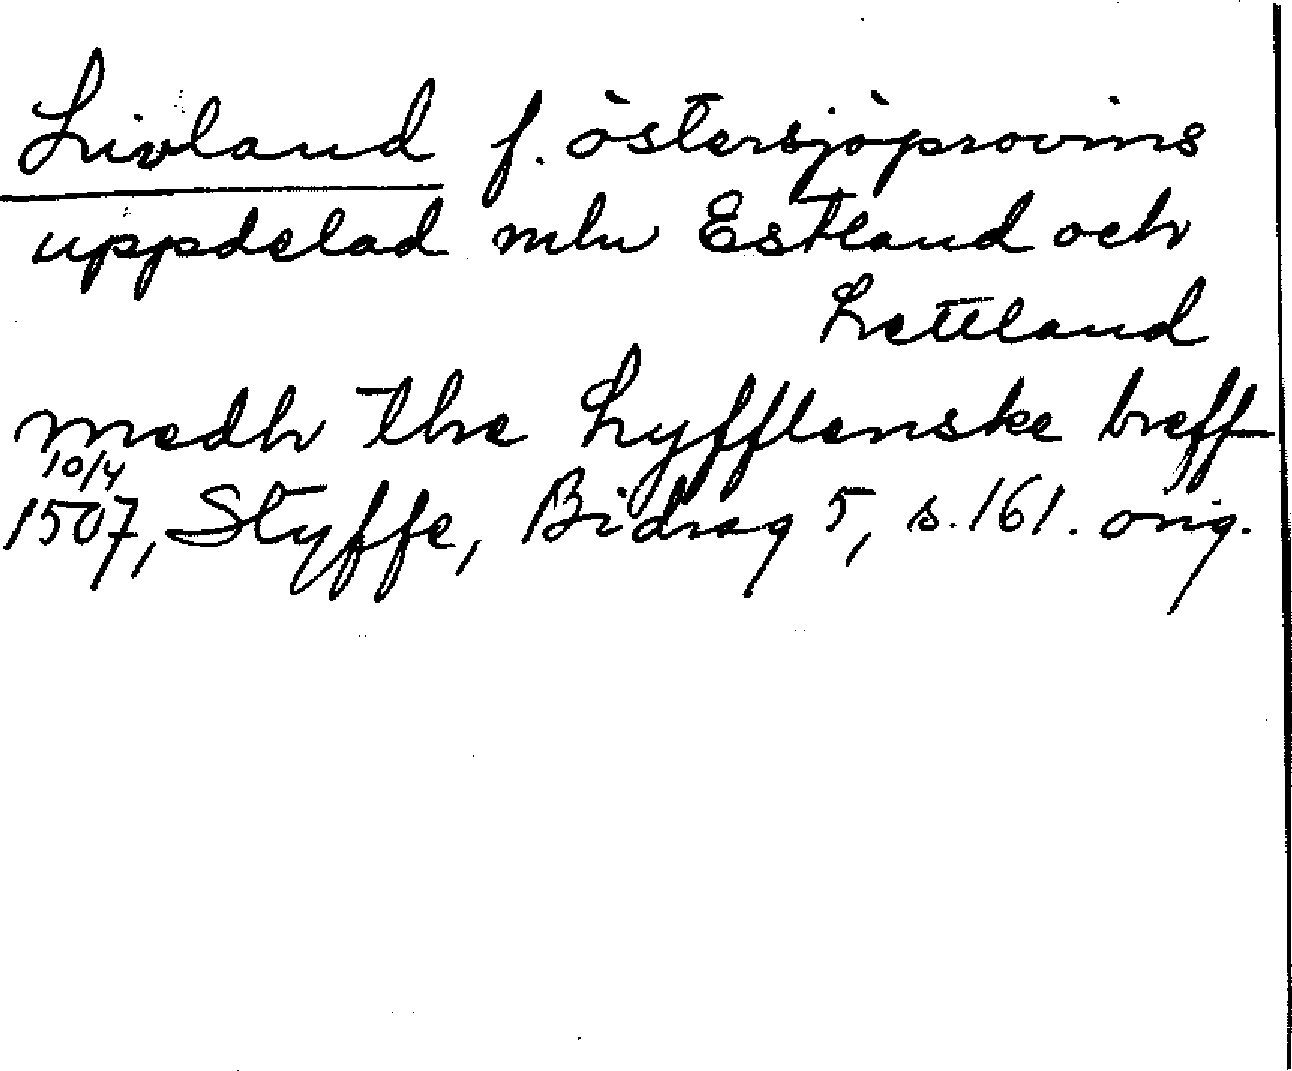 Livland f. östersjöprovins
uppdelad mln Estland och
Lettland
medh the Lyfflenske breff
10/4
1507, Styffe, Bidrag 5, s. 161. orig.